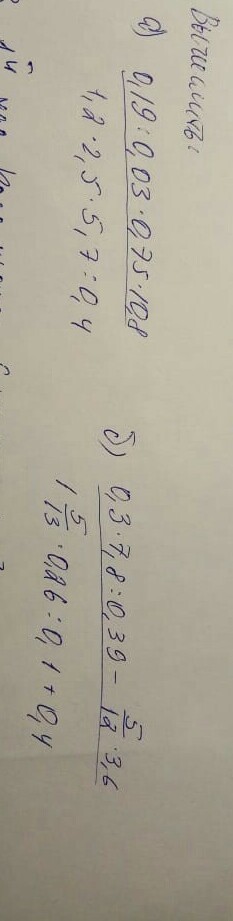 Вычислить:
а) 0,19:0,03·0,75·10,8
1,2·2,5·5,7:0,4
б) 0,3·7,8:0,39 - 5/12·3,6
1 5/13·0,26:0,1+0,4